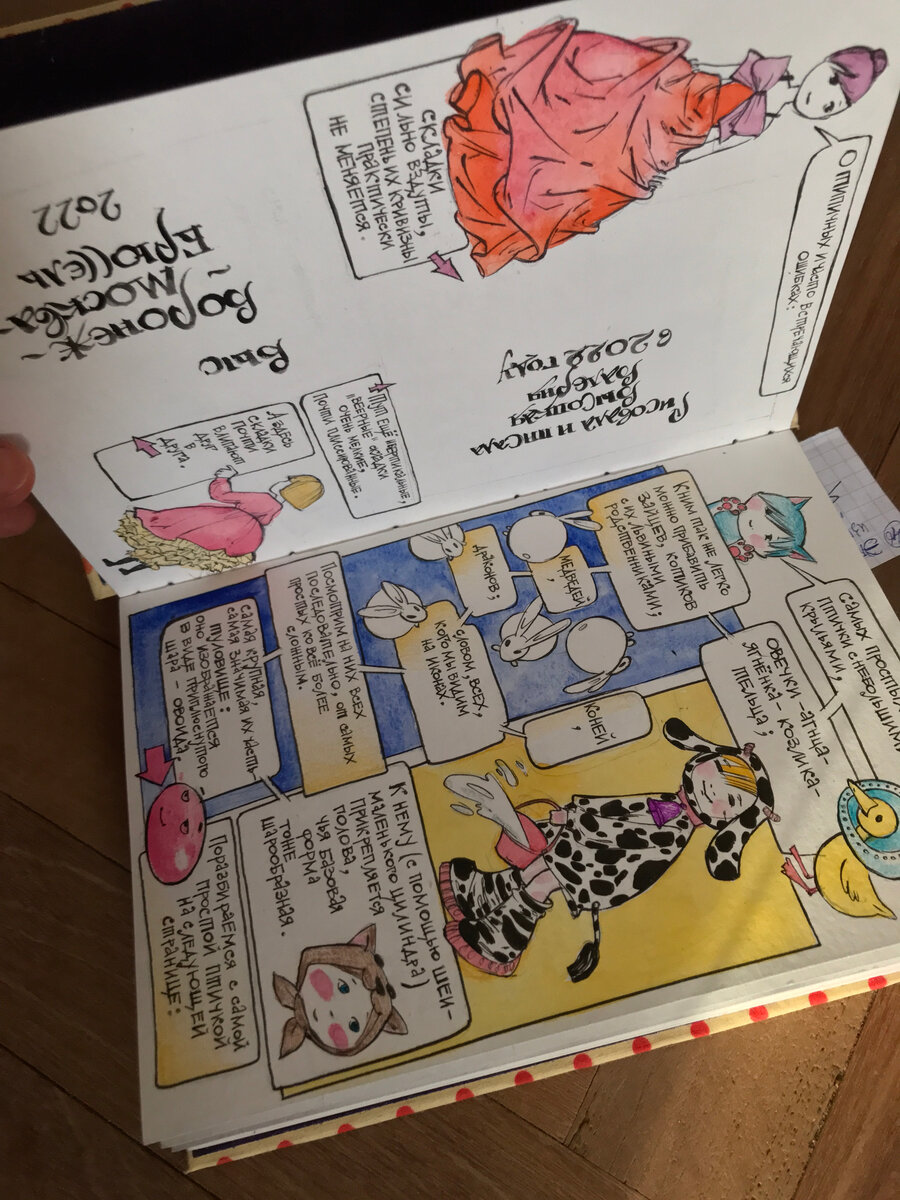 О типичных и часто встречающихся
ошибках:
складки
сильно вздуты,
степень их кривизны
практически
не меняется.
Рисовала и писала
Высоцкая
Валерия
в 2022 году
Выс
Воронеж -
Москва -
Брюссель
2022
Тут ещё вертикальные,
"веерные" складки
очень мелкие,
почти плиссированные.
А здесь
складки
почти
влипают
друг
в
друга.
самых простых:
птички с небольшими
крыльями,
овечки-агнца-
ягнёнка-козлика-
тельца;
К ним так же легко
можно прибавить
зайцев, котиков
с их львиными
родственниками;
медведей
,
драконов;
коней
,
словом, всех,
кого мы видим
на иконах.
Посмотрим на них всех
последовательно, от самых
простых ко всё более
сложным.
самая крупная,
самая значимая их часть
туловище:
оно изображается
в виде приплюснутого
шара - овоида.
К нему (с помощью шеи-
маленького цилиндра)
прикрепляется
голова,
чья базовая
форма
тоже
шарообразная.
Поразбираемся с самой
простой птичкой
на следующей
странице: